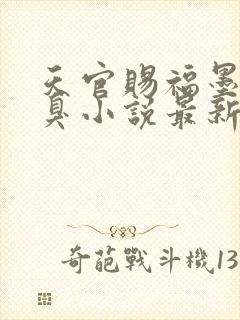 天官賜福墨
臭小說最新
奇葩戰斗機13